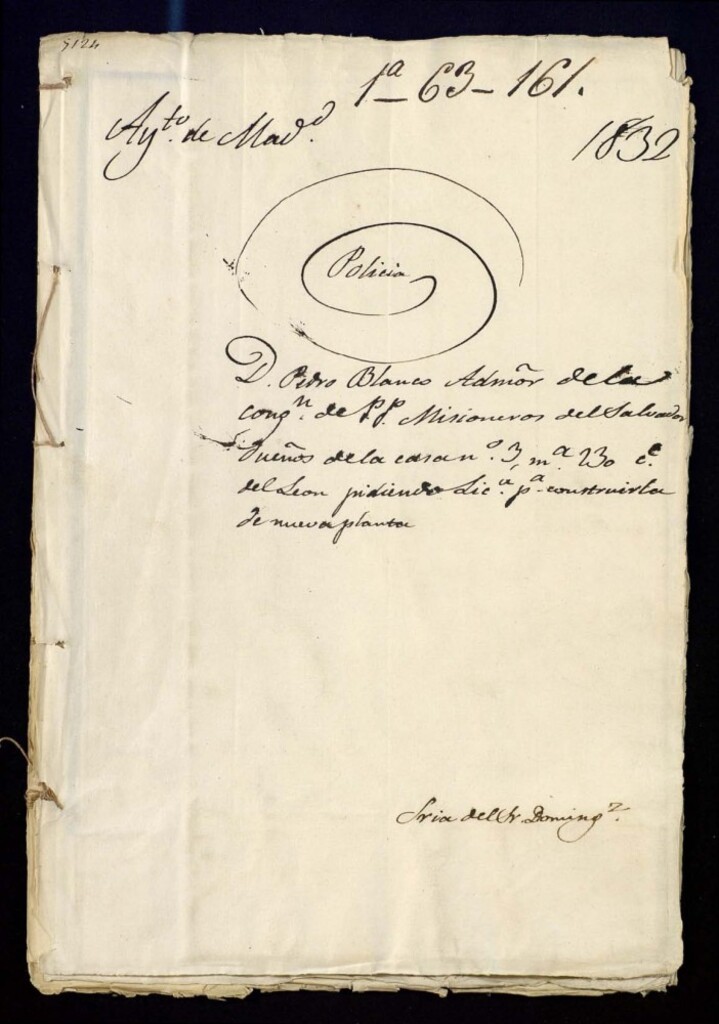 5124
1ª - 63 - 161.
Ayto. de Madd.
1832
Policia
D. Pedro Blanco Admõr de la
congn. de PP. Misioneros del Salvador
Dueños de la casa nº. 3, mª. 230 ce.
del Leon pidiendo Lica. pª. construirla
de nueva planta
Sria del Sr Domingz.